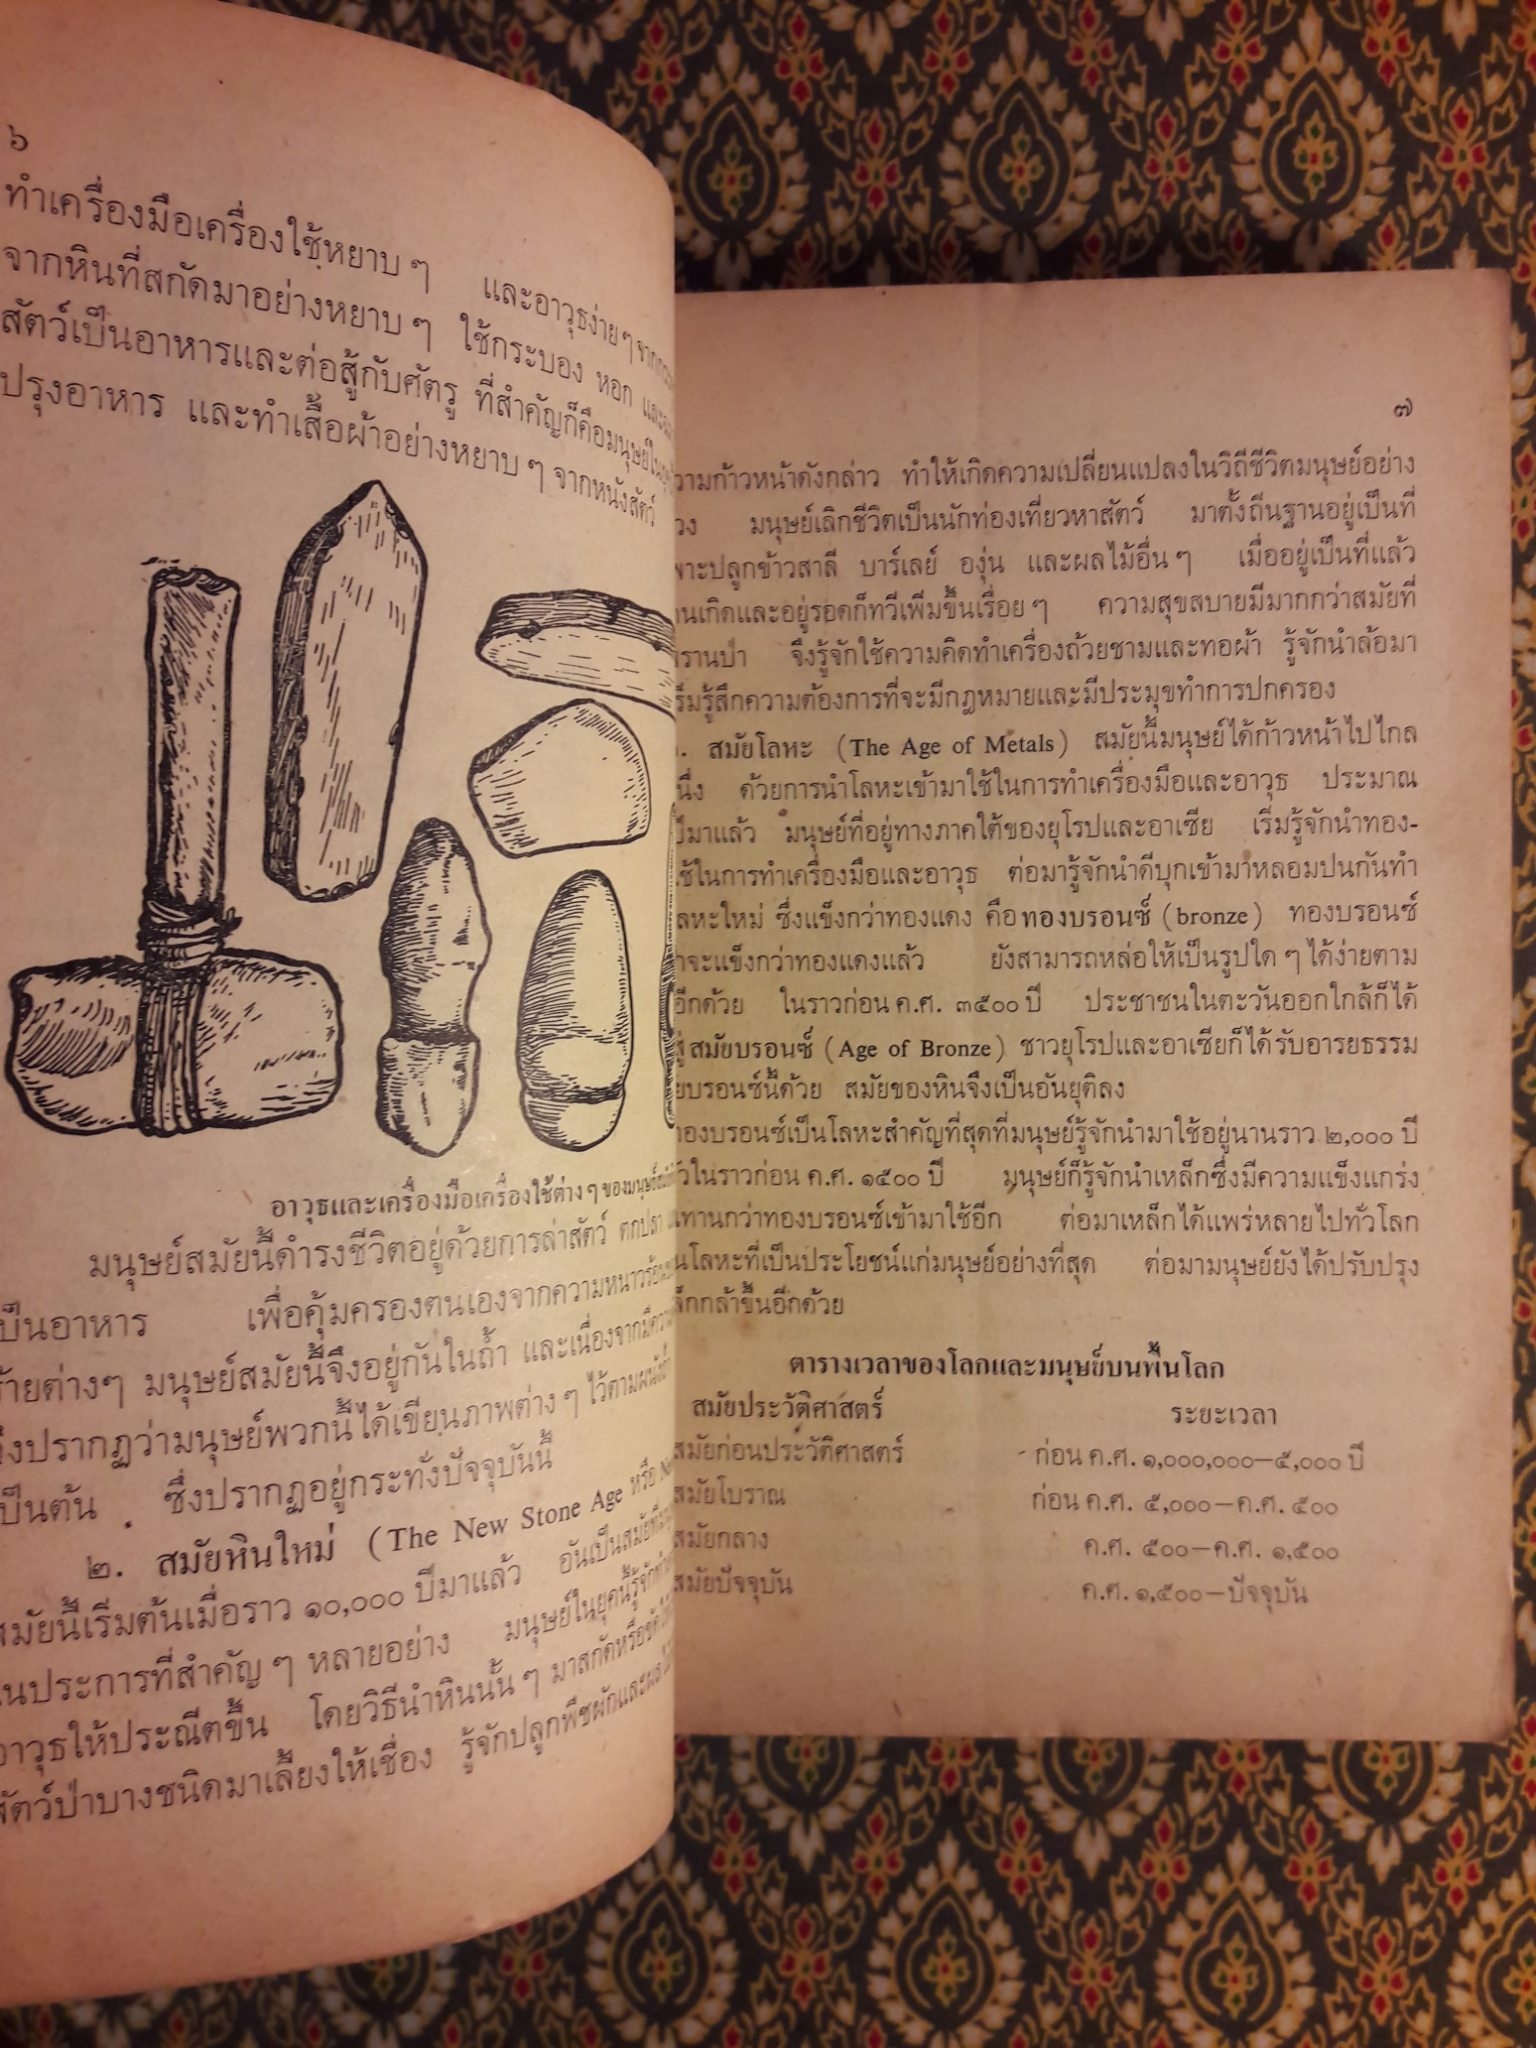 ๖
ทำเครื่องมือเครื่องใช้หยาบ ๆ และอาวุธง่าย ๆ
จากหินที่สกัดมาอย่างหยาบ ๆ ใช้กระบอง หอก
สัตว์เป็นอาหารและต่อสู้กับศัตรู ที่สำคัญก็คือมนุษย์
ปรุงอาหาร และทำเสื้อผ้าอย่างหยาบ ๆ จากหนังสัตว์
อาวุธและเครื่องมือเครื่องใช้ต่าง ๆ ของมนุษย์
มนุษย์สมัยนี้ดำรงชีวิตอยู่ด้วยการล่าสัตว์ ตกปลา
เป็นอาหาร เพื่อคุ้มครองตนเองจากความหนาว
ร้ายต่างๆ มนุษย์สมัยนี้จึงอยู่กันในถ้ำ และเนื่องจากมี
จึงปรากฏว่ามนุษย์พวกนี้ได้เขียนภาพต่าง ๆ ไว้ตามผนัง
เป็นต้น ซึ่งปรากฏอยู่กระทั่งปัจจุบันนี้
๒. สมัยหินใหม่ (The New Stone Age หรือ
สมัยนี้เริ่มต้นเมื่อราว ๑๐,๐๐๐ ปีมาแล้ว อันเป็นสมัยที่
ในประการที่สำคัญ ๆ หลายอย่าง มนุษย์ในยุคนี้รู้จัก
อาวุธให้ประณีตขึ้น โดยวิธีนำหินนั้น ๆ มาสกัดหรือขัด
สัตว์ป่าบางชนิดมาเลี้ยงให้เชื่อง รู้จักปลูกพืชผักและ
๗
วามก้าวหน้าดังกล่าว ทำให้เกิดความเปลี่ยนแปลงในวิถีชีวิตมนุษย์อย่าง
วง มนุษย์เลิกชีวิตเป็นนักท่องเที่ยวหาสัตว์ มาตั้งถิ่นฐานอยู่เป็นที่
พาะปลูกข้าวสาลี บาร์เลย์ องุ่น และผลไม้อื่น ๆ เมื่ออยู่เป็นที่แล้ว
นเกิดและอยู่รอดก็ทวีเพิ่มขึ้นเรื่อย ๆ ความสุขสบายมีมากกว่าสมัยที่
พรานป่า จึงรู้จักใช้ความคิดทำเครื่องถ้วยชามและทอผ้า รู้จักนำล้อมา
ริ่มรู้สึกความต้องการที่จะมีกฎหมายและมีประมุขทำการปกครอง
. สมัยโลหะ (The Age of Metals) สมัยนี้มนุษย์ได้ก้าวหน้าไปไกล
นึ่ง ด้วยการนำโลหะเข้ามาใช้ในการทำเครื่องมือและอาวุธ ประมาณ
ปีมาแล้ว มนุษย์ที่อยู่ทางภาคใต้ของยุโรปและอาเซีย เริ่มรู้จักนำทอง-
ใช้ในการทำเครื่องมือและอาวุธ ต่อมารู้จักนำดีบุกเข้ามาหลอมปนกันทำ
ลหะใหม่ ซึ่งแข็งกว่าทองแดง คือทองบรอนซ์ (bronze) ทองบรอนซ์
จะแข็งกว่าทองแดงแล้ว ยังสามารถหล่อให้เป็นรูปใด ๆ ได้ง่ายตาม
อีกด้วย ในราวก่อน ค.ศ. ๓๕๐๐ ปี ประชาชนในตะวันออกใกล้ก็ได้
สู่สมัยบรอนซ์ (Age of Bronze) ชาวยุโรปและอาเซียก็ได้รับอารยธรรม
ยบรอนซ์นี้ด้วย สมัยของหินจึงเป็นอันยุติลง
ทองบรอนซ์เป็นโลหะสำคัญที่สุดที่มนุษย์รู้จักนำมาใช้อยู่นานราว ๒,๐๐๐ ปี
ในราวก่อน ค.ศ. ๑๕๐๐ ปี มนุษย์ก็รู้จักนำเหล็กซึ่งมีความแข็งแกร่ง
นทานกว่าทองบรอนซ์เข้ามาใช้อีก ต่อมาเหล็กได้แพร่หลายไปทั่วโลก
นโลหะที่เป็นประโยชน์แก่มนุษย์อย่างที่สุด ต่อมามนุษย์ยังได้ปรับปรุง
ล็กกล้าขึ้นอีกด้วย
ตารางเวลาของโลกและมนุษย์บนพื้นโลก
สมัยประวัติศาสตร์ ระยะเวลา
สมัยก่อนประวัติศาสตร์ ก่อน ค.ศ. ๑,๐๐๐,๐๐๐—๕,๐๐๐ ปี
สมัยโบราณ ก่อน ค.ศ. ๕,๐๐๐—ค.ศ. ๕๐๐
สมัยกลาง ค.ศ. ๕๐๐—ค.ศ. ๑,๕๐๐
สมัยปัจจุบัน ค.ศ. ๑,๕๐๐—ปัจจุบัน